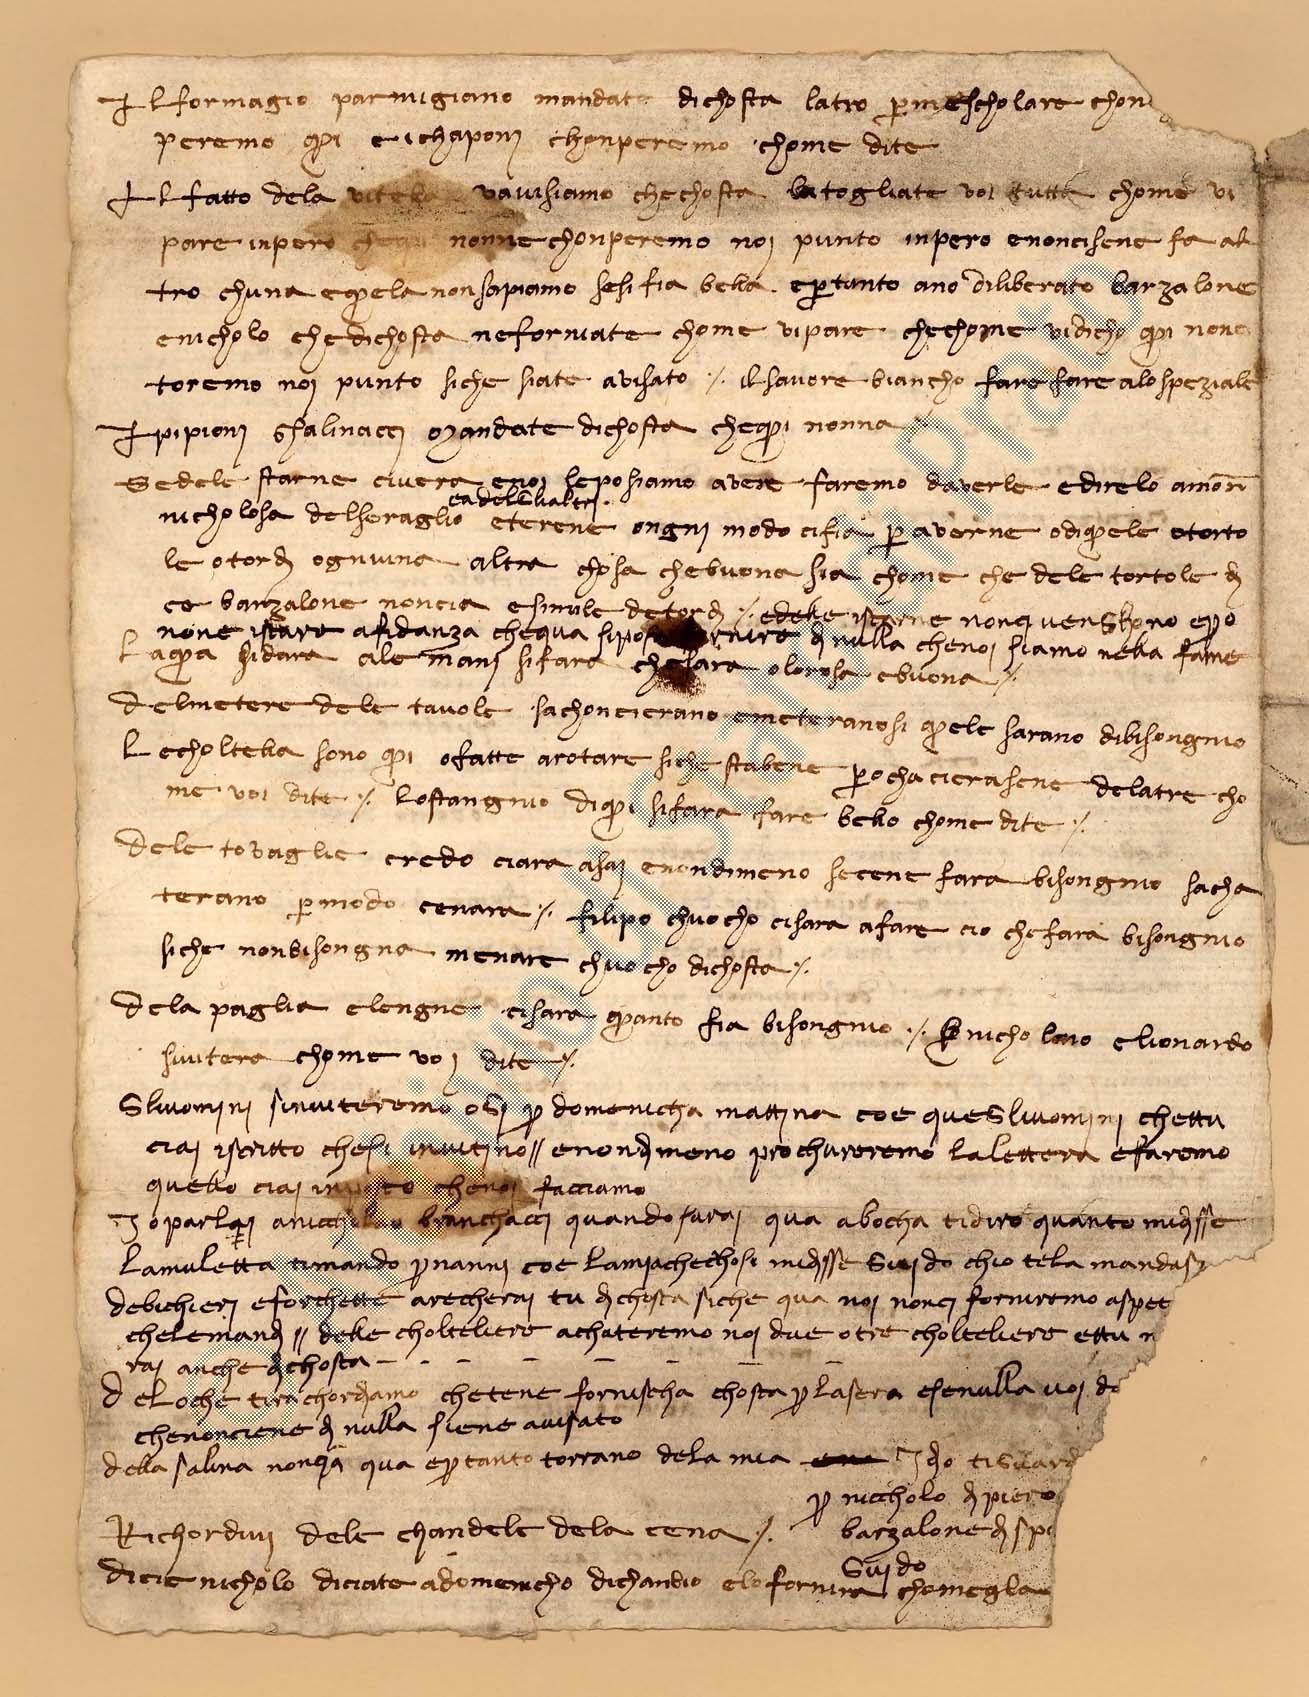 Il formagio parmigiano mandate dichosta latro per mescholare chon
peremo qui e ichaponi chonperemo chome dite
Il fatto dela vitella vavisiamo chechosta la togliate voi tutta chome vi
pare inpero chequi nonne chonperemo noi punto inpero enoncisene fa al
tro chuna equela nonsapiamo sesifia bella epertanto ano diliberato barzalone
enicholo chedichosta neforniate chome vipare chechome vidicho qui none
toremo noi punto siche siate avisato ./. il savore biancho fare fare alo speziale
I pipioni ghalinacci mandate dichosta chequi nonna
Sedele starne civera enoi leposiamo avere faremo daverle edirelo amon
eadelli altri
nicholosa delseraglio eterene ongni modo cifia per averne odiquele etorto
le otordi ogniuna altra chosa chebuona sia chome che dele tortole di
ce barzalone noncia esimile detordi ./. edelle istarne nonci venghono epero
none istare afidanza chequa sipossa fornire di nulla chenoi siamo nella fame
Laqua sidara ale mani sifara chesara olorosa ebuona ./.
Delmetere dele tavole sachoncierano emeteranosi quele sarano dibisongnio
Lecholtella sono qui ofatte arotare siche stabene perocha cierasene delatre cho
me voi dite ./. Lostangnio diqui sifara fare bello chome dite ./.
Dele tovaglie credo ciara asai enondimeno secene fara bisongnio sacha
terano per modo cenara ./. filipo chuocho cisara afare cio chefara bisongnio
siche nonbisongna menare chuocho dichosta ./.
Dela paglia elengne cisara quanto fia bisongnio ./. nicholaio elionardo
sinvitera chome voi dite ./.
Gliuomini sinviteremo ogi per domenicha mattina coe quegliuomini chettu
ciai iscritto chesi invitino // enondimeno prochureremo lalettera efaremo
quello ciai inposto chenoi facciamo
Io parlai anicchollo branchacci quandosarai qua abocha tidiro quanto midisse
Lamuletta timando per nanni coe lanpachechosi midisse Guido chio tela mandasi
debichieri eforchette arecherai tu dichosta siche qua noi nonci forniremo aspet
chelemandi // delle choltelliere achateremo noi due otre choltelliere ettu
rai anche dichosta
Deloche tirachordiamo chetene fornischa chosta per lasera esenulla voi
chenonciene di nulla siene avisato
Della salina noncia qua epertanto torrano dela mia Idio tiguard
per niccholo di piero
Richordivi dele chandele dela cena ./. barzalone di spe
Guido
Dicie nicholo diciate adomenicho dichandio elofornira chomegla